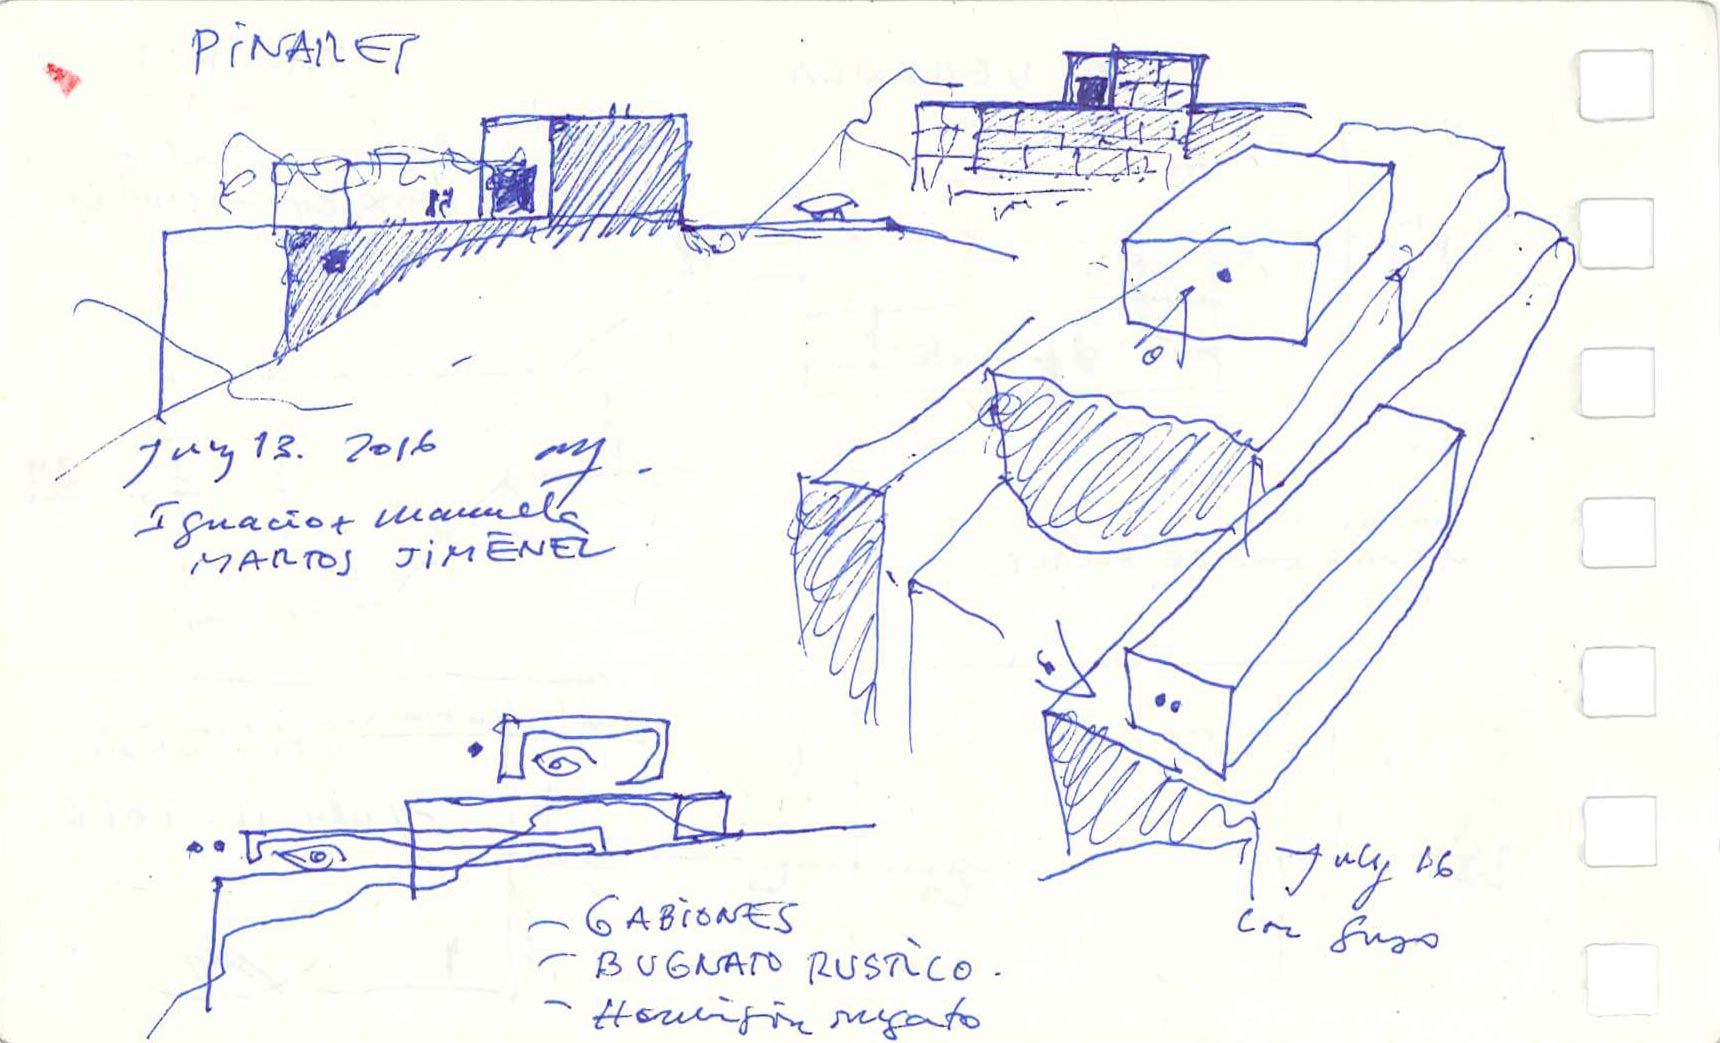 PiNARET
July 13. 2016
Ignacio + Manuela
MARTOS JIMÉNEZ
July 16
con
- GABIONES
- BUGNATO RUSTICO.
- Hormigón